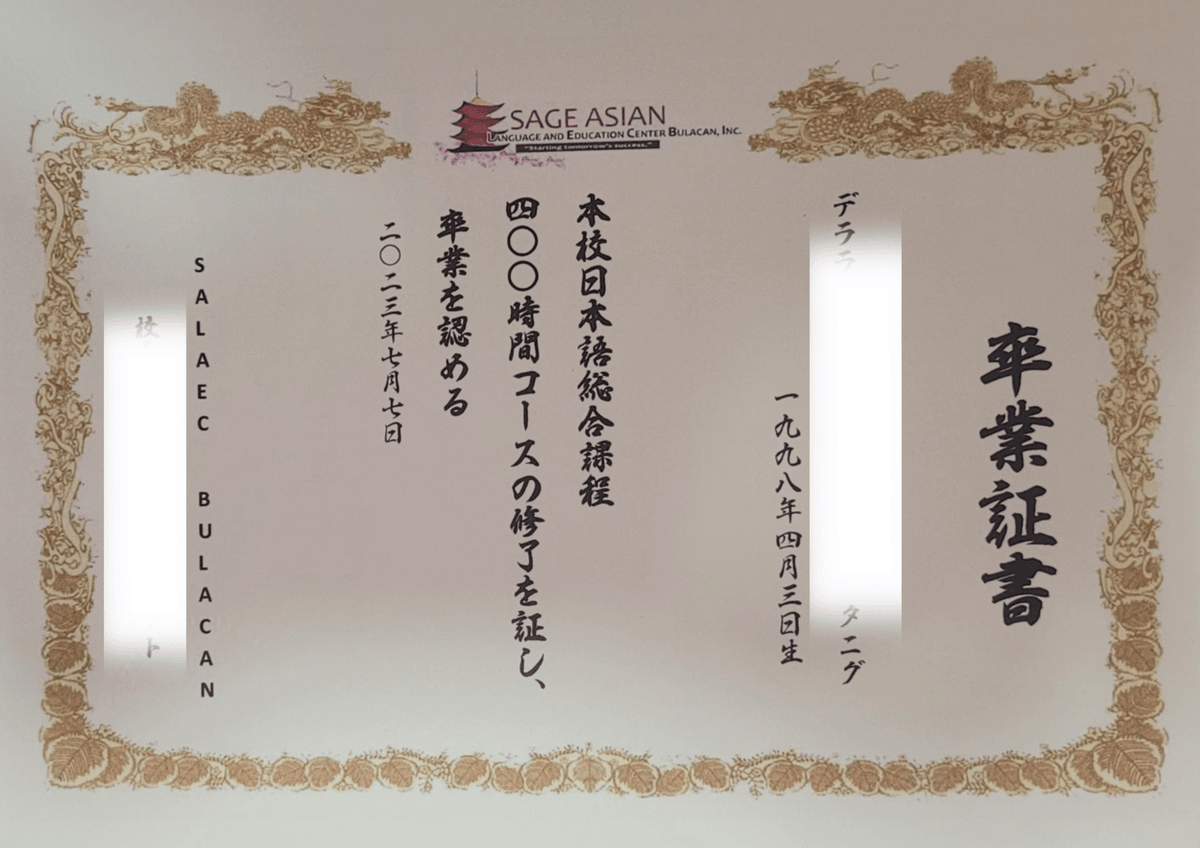 SAGE ASIAN
LANGUAGE AND EDUCATION CENTER BULACAN, INC.
"Starting tomorrow's success."
卒業証書
デララ
タニグ
一九九八年四月三日生
本校日本語総合課程
四〇〇時間コースの修了を証し、
卒業を認める
二〇二三年七月七日
SALAEC BULACAN
校
ト